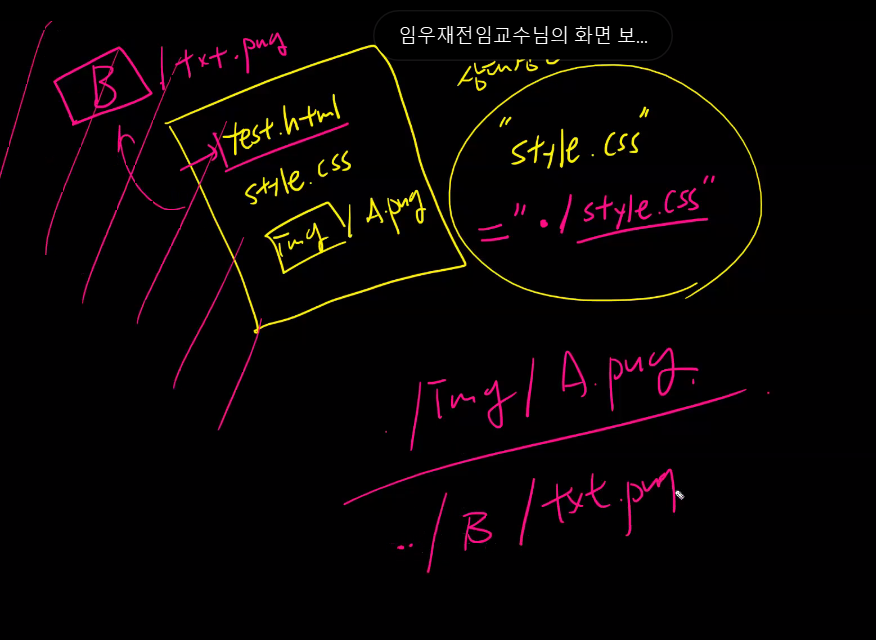 임우재전임교수님의 화면 보...
B / txt.png
test.html
style.css
Img / A.png
"style.css"
= "./style.css"
./Img/A.png
../B/txt.png